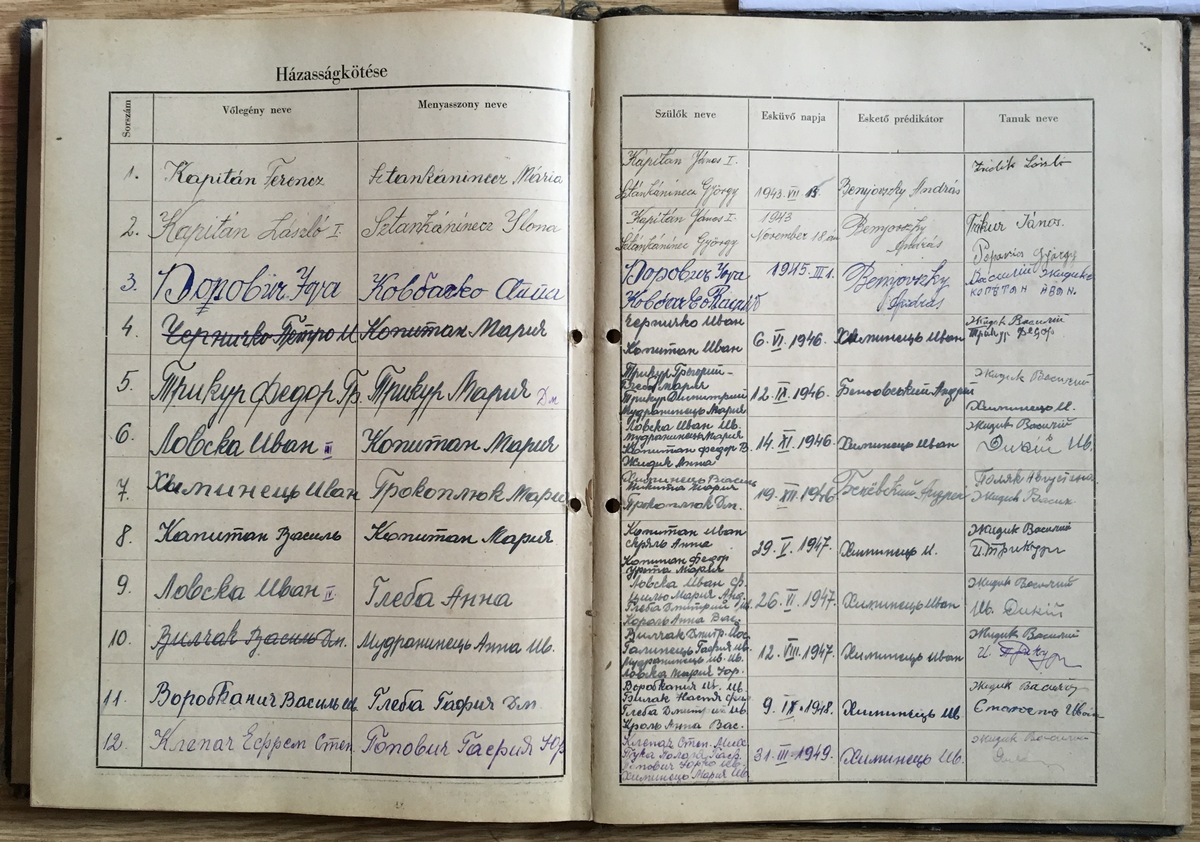 Házasságkötése
Sorszám Vőlegény neve Menyasszony neve Szülők neve Esküvő napja Eskető prédikátor Tanuk neve
Kapitán János I.
1. Kapitán Ferencz Sztankáninecz Mária 1943 VII Benyovszky András László
Sztánkáninecz György
2. Kapitán László I. Sztankáninecz Ilona Kapitán János I. 1943 Benyovszky János.
Sztánkáninec György November 18 án András Popovics György
3. Юра Ковбаско Юра 1945 III 1. Benyovszky Василий Жидик
András
4. Черничко Петро И Копитан Мария Черничко Иван 6. VI. 1946. Химинець Иван Жидик Василий
Копитан Иван Трикур Федор
5. Трикур Федор Гр. Трикур Мария Дм Трикур Григорий 12. IX. 1946. Андрей Жидик Василий
Глеба Мария
Трикур Димитрий
Мудранинець Мария Химинець И.
6. Ловска Иван III Копитан Мария Ловска Иван Ив. 14. XI. 1946. Химинець Иван Жидик Василий
Мудранинець Мария
Копитан Федор В. Дикий Ив.
Жидик Анна
7. Химинець Иван Прокоплюк Мария Химинець Василь 19. XII. 1946 Андрей Поляк
Микита Мария
Прокоплюк Дм. Жидик Васил
8. Капитан Василь Копитан Мария Копитан Иван 29. V. 1947. Химинець И. Жидик Василий
Анна И. Трикур
Копитан Федор
Мария
9. Ловска Иван IV. Глеба Анна Ловска Иван Ф. 26. VI. 1947. Химинець Иван Жидик Василий
Мария Анд.
Глеба Дмитрий Ив. Ив. Дикій
Король Анна Вас.
10. Вилчак Василь Дм. Мудранинець Анна Ив. Вилчак Дмитр. Йос. 12. VIII. 1947. Химинець Иван Жидик Василий
Галинець Гафия Ив. И.
Мудранинець Ив. Ив.
Ловска Мария Юр.
11. Воробканич Василь Ив. Глеба Гафия Дм. Воробканич Ив. Ив. 9. IX. 1948. Химинець Ив Жидик Василий
Вилак Настя
Глеба Дмитрий Ив Староста Иван
Кроль Анна Вас.
12. Клепач Ефрем Степ. Попович Гафия Юр Клепач Степ. Мих 31. III 1949. Химинець Ив. Жидик Василий
Попович Юрко Ив.
Химинець Мария Ив.